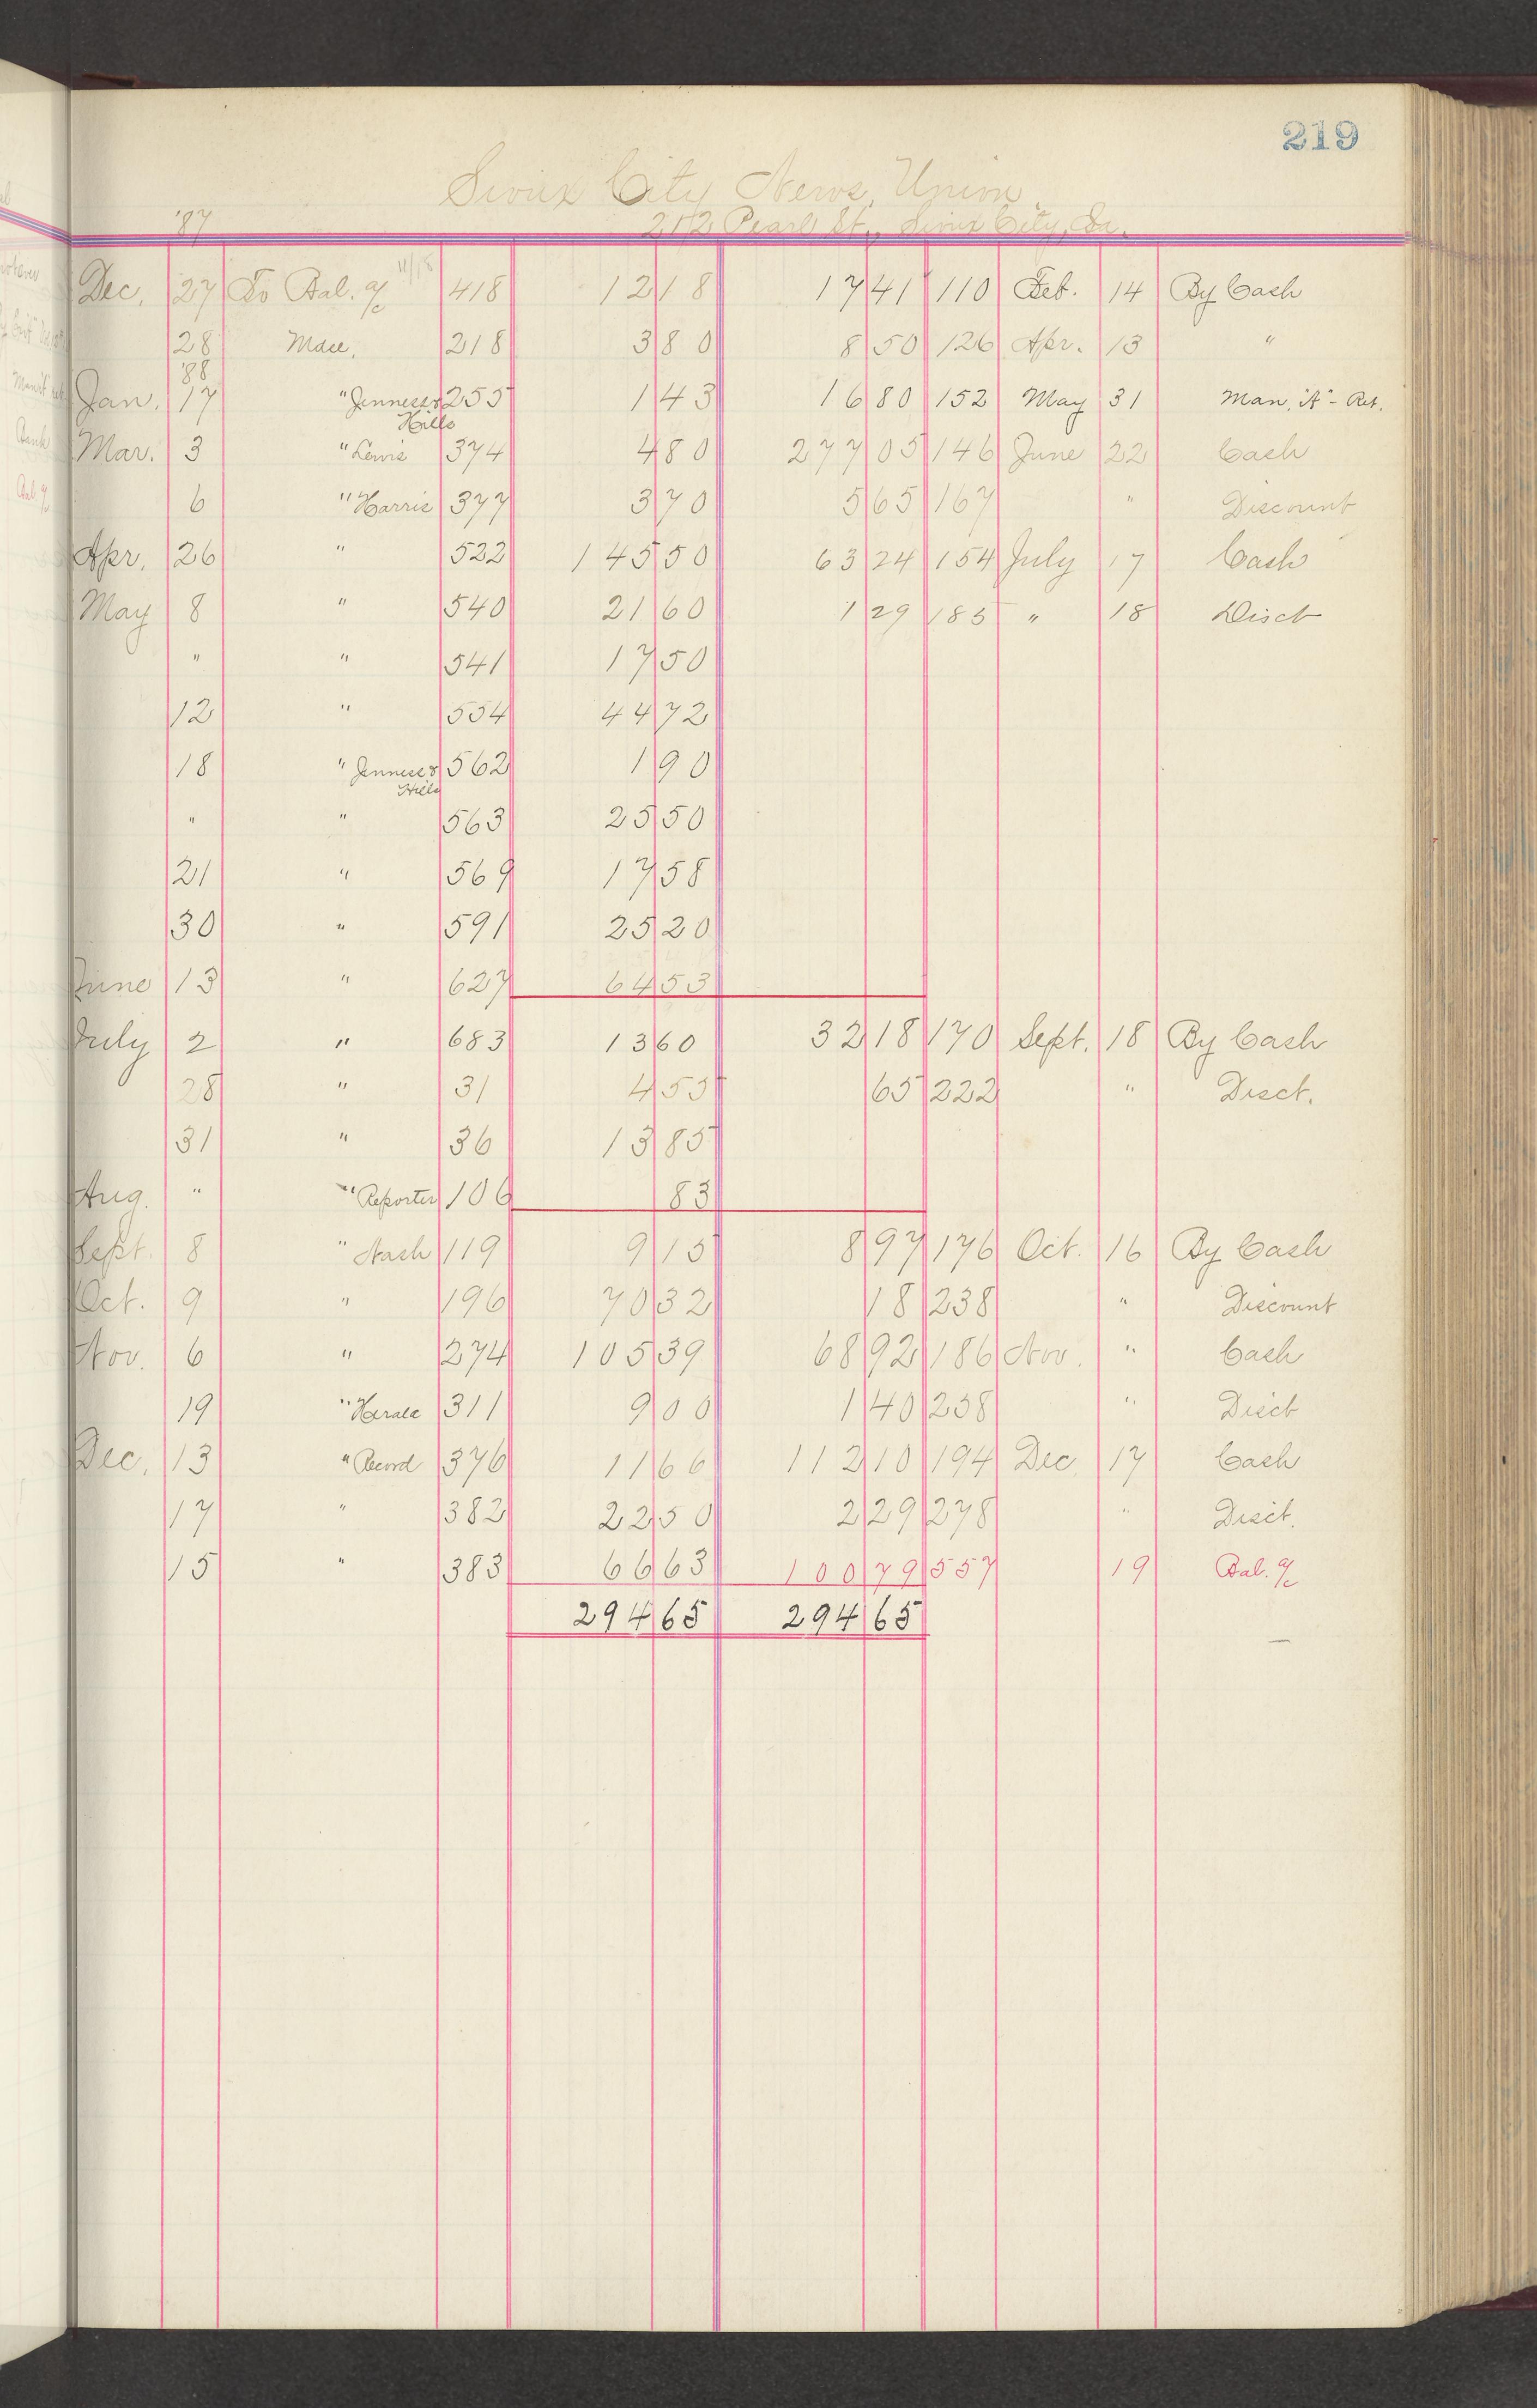 219
Sioux City News Union
'87 212 Pearl St., Sioux City, Ia.
Dec. 27 To Bal. a/c 11/15 418 12 18 17 41 110 Feb. 14 By Cash
28 Mdse. 218 3 80 8 50 126 Apr. 13 "
'88
Jan. 17 " Jenness & 255 1 43 16 80 152 May 31 Man. "A" - Ret.
Hills
Mar. 3 " Lewis 374 4 80 277 05 146 June 22 Cash
6 " Harris 377 3 70 5 65 167 " Discount
Apr. 26 " 522 145 50 63 24 154 July 17 Cash
May 8 " 540 21 60 1 29 185 " 18 Disct
" " 541 17 50
12 " 554 44 72
18 " Jenness & 562 1 90
Hills
" " 563 25 50
21 " 569 17 58
30 " 591 25 20
June 13 " 627 64 53
July 2 " 683 13 60 32 18 170 Sept. 18 By Cash
28 " 31 4 55 65 222 " Disct.
31 " 36 13 85
Aug. " " Reporter 106 83
Sept. 8 " Nash 119 9 15 8 97 176 Oct. 16 By Cash
Oct. 9 " 196 70 32 18 238 " Discount
Nov. 6 " 274 105 39 68 92 186 Nov. " Cash
19 " Herald 311 9 00 1 40 238 " Disct
Dec. 13 " Record 376 11 66 112 10 194 Dec 17 Cash
17 " 382 22 50 2 29 278 " Disct.
15 " 383 66 63 100 79 557 19 Bal. a/c
294 65 294 65